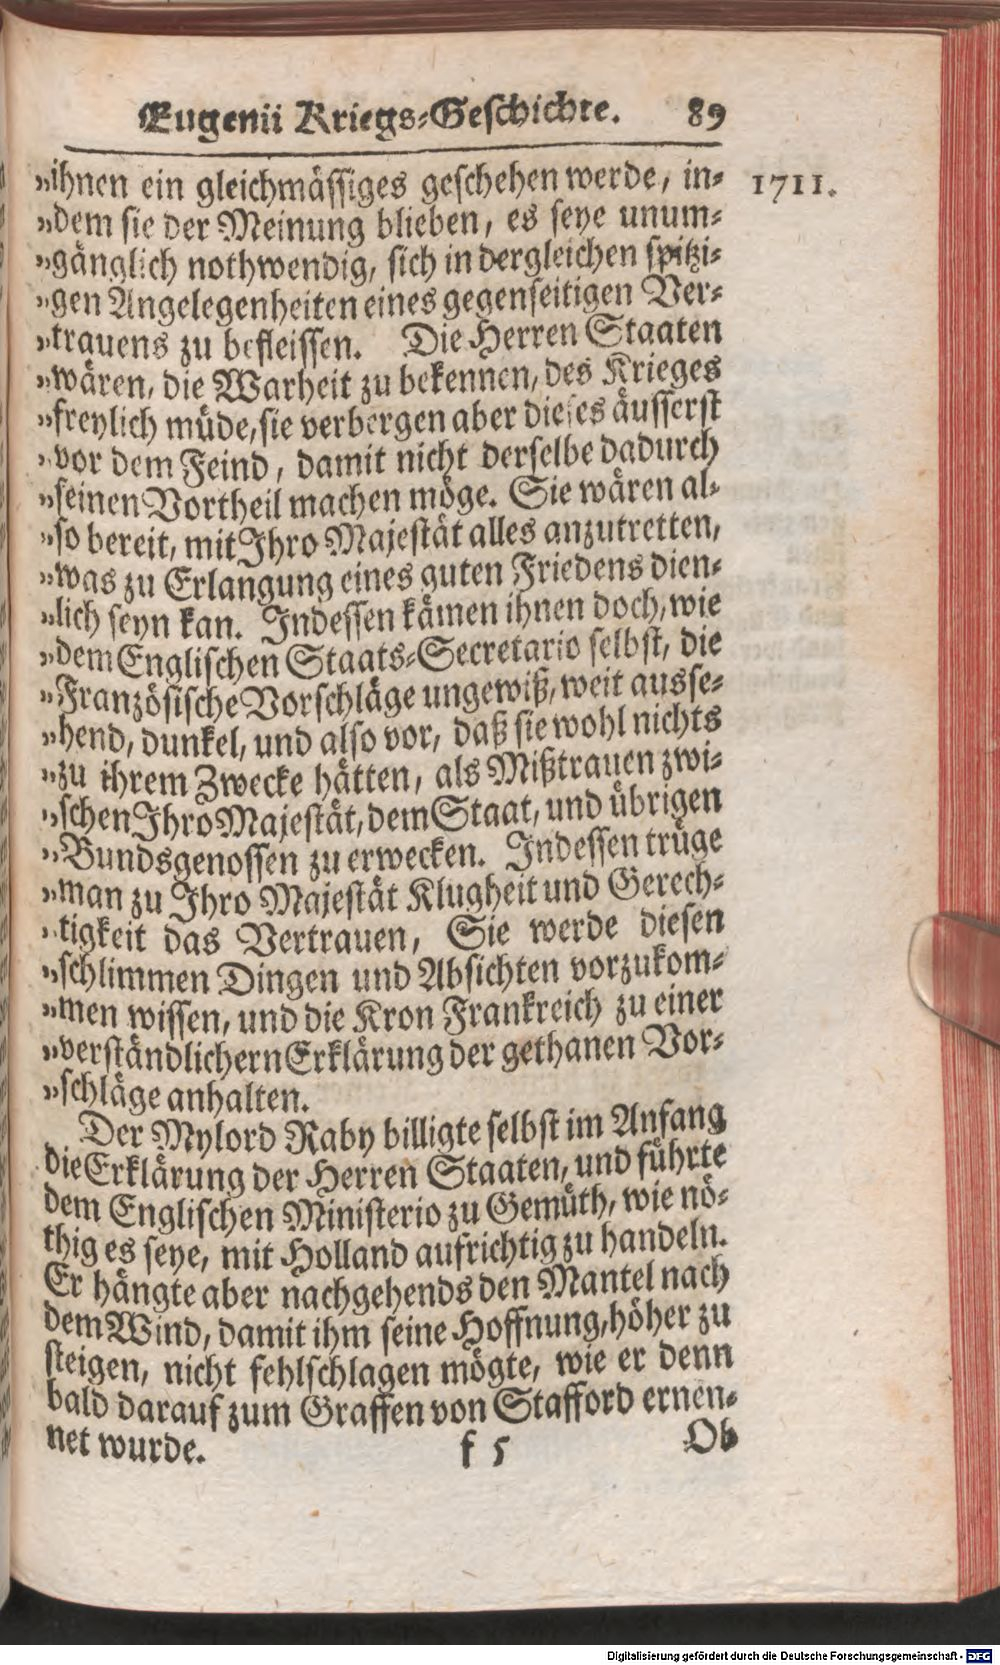 Eugenii Kriegs-Geschichte. 89
1711.
„ihnen ein gleichmässiges geschehen werde, in-
„dem sie der Meinung blieben, es seye unum-
„gänglich nothwendig, sich in dergleichen spitzi-
„gen Angelegenheiten eines gegenseitigen Ver-
„trauens zu befleissen. Die Herren Staaten
„wären, die Warheit zu bekennen, des Krieges
„freylich müde, sie verbergen aber dieses äusserst
„vor dem Feind, damit nicht derselbe dadurch
„seinen Vortheil machen möge. Sie wären al-
„so bereit, mit Ihro Majestät alles anzutretten,
„was zu Erlangung eines guten Friedens dien-
„lich seyn kan. Indessen kämen ihnen doch, wie
„dem Englischen Staats-Secretario selbst, die
„Französische Vorschläge ungewiß, weit ausse-
„hend, dunkel, und also vor, daß sie wohl nichts
„zu ihrem Zwecke hätten, als Mißtrauen zwi-
„schen Ihro Majestät, dem Staat, und übrigen
„Bundsgenossen zu erwecken. Indessen trüge
„man zu Ihro Majestät Klugheit und Gerech-
„tigkeit das Vertrauen, Sie werde diesen
„schlimmen Dingen und Absichten vorzukom-
„men wissen, und die Kron Frankreich zu einer
„verständlichern Erklärung der gethanen Vor-
„schläge anhalten.
Der Mylord Raby billigte selbst im Anfang
die Erklärung der Herren Staaten, und führte
dem Englischen Ministerio zu Gemüth, wie nö-
thig es seye, mit Holland aufrichtig zu handeln.
Er hängte aber nachgehends den Mantel nach
dem Wind, damit ihm seine Hoffnung, höher zu
steigen, nicht fehlschlagen mögte, wie er denn
bald darauf zum Graffen von Stafford ernen-
net wurde. f 5 Ob
Digitalisierung gefördert durch die Deutsche Forschungsgemeinschaft - DFG